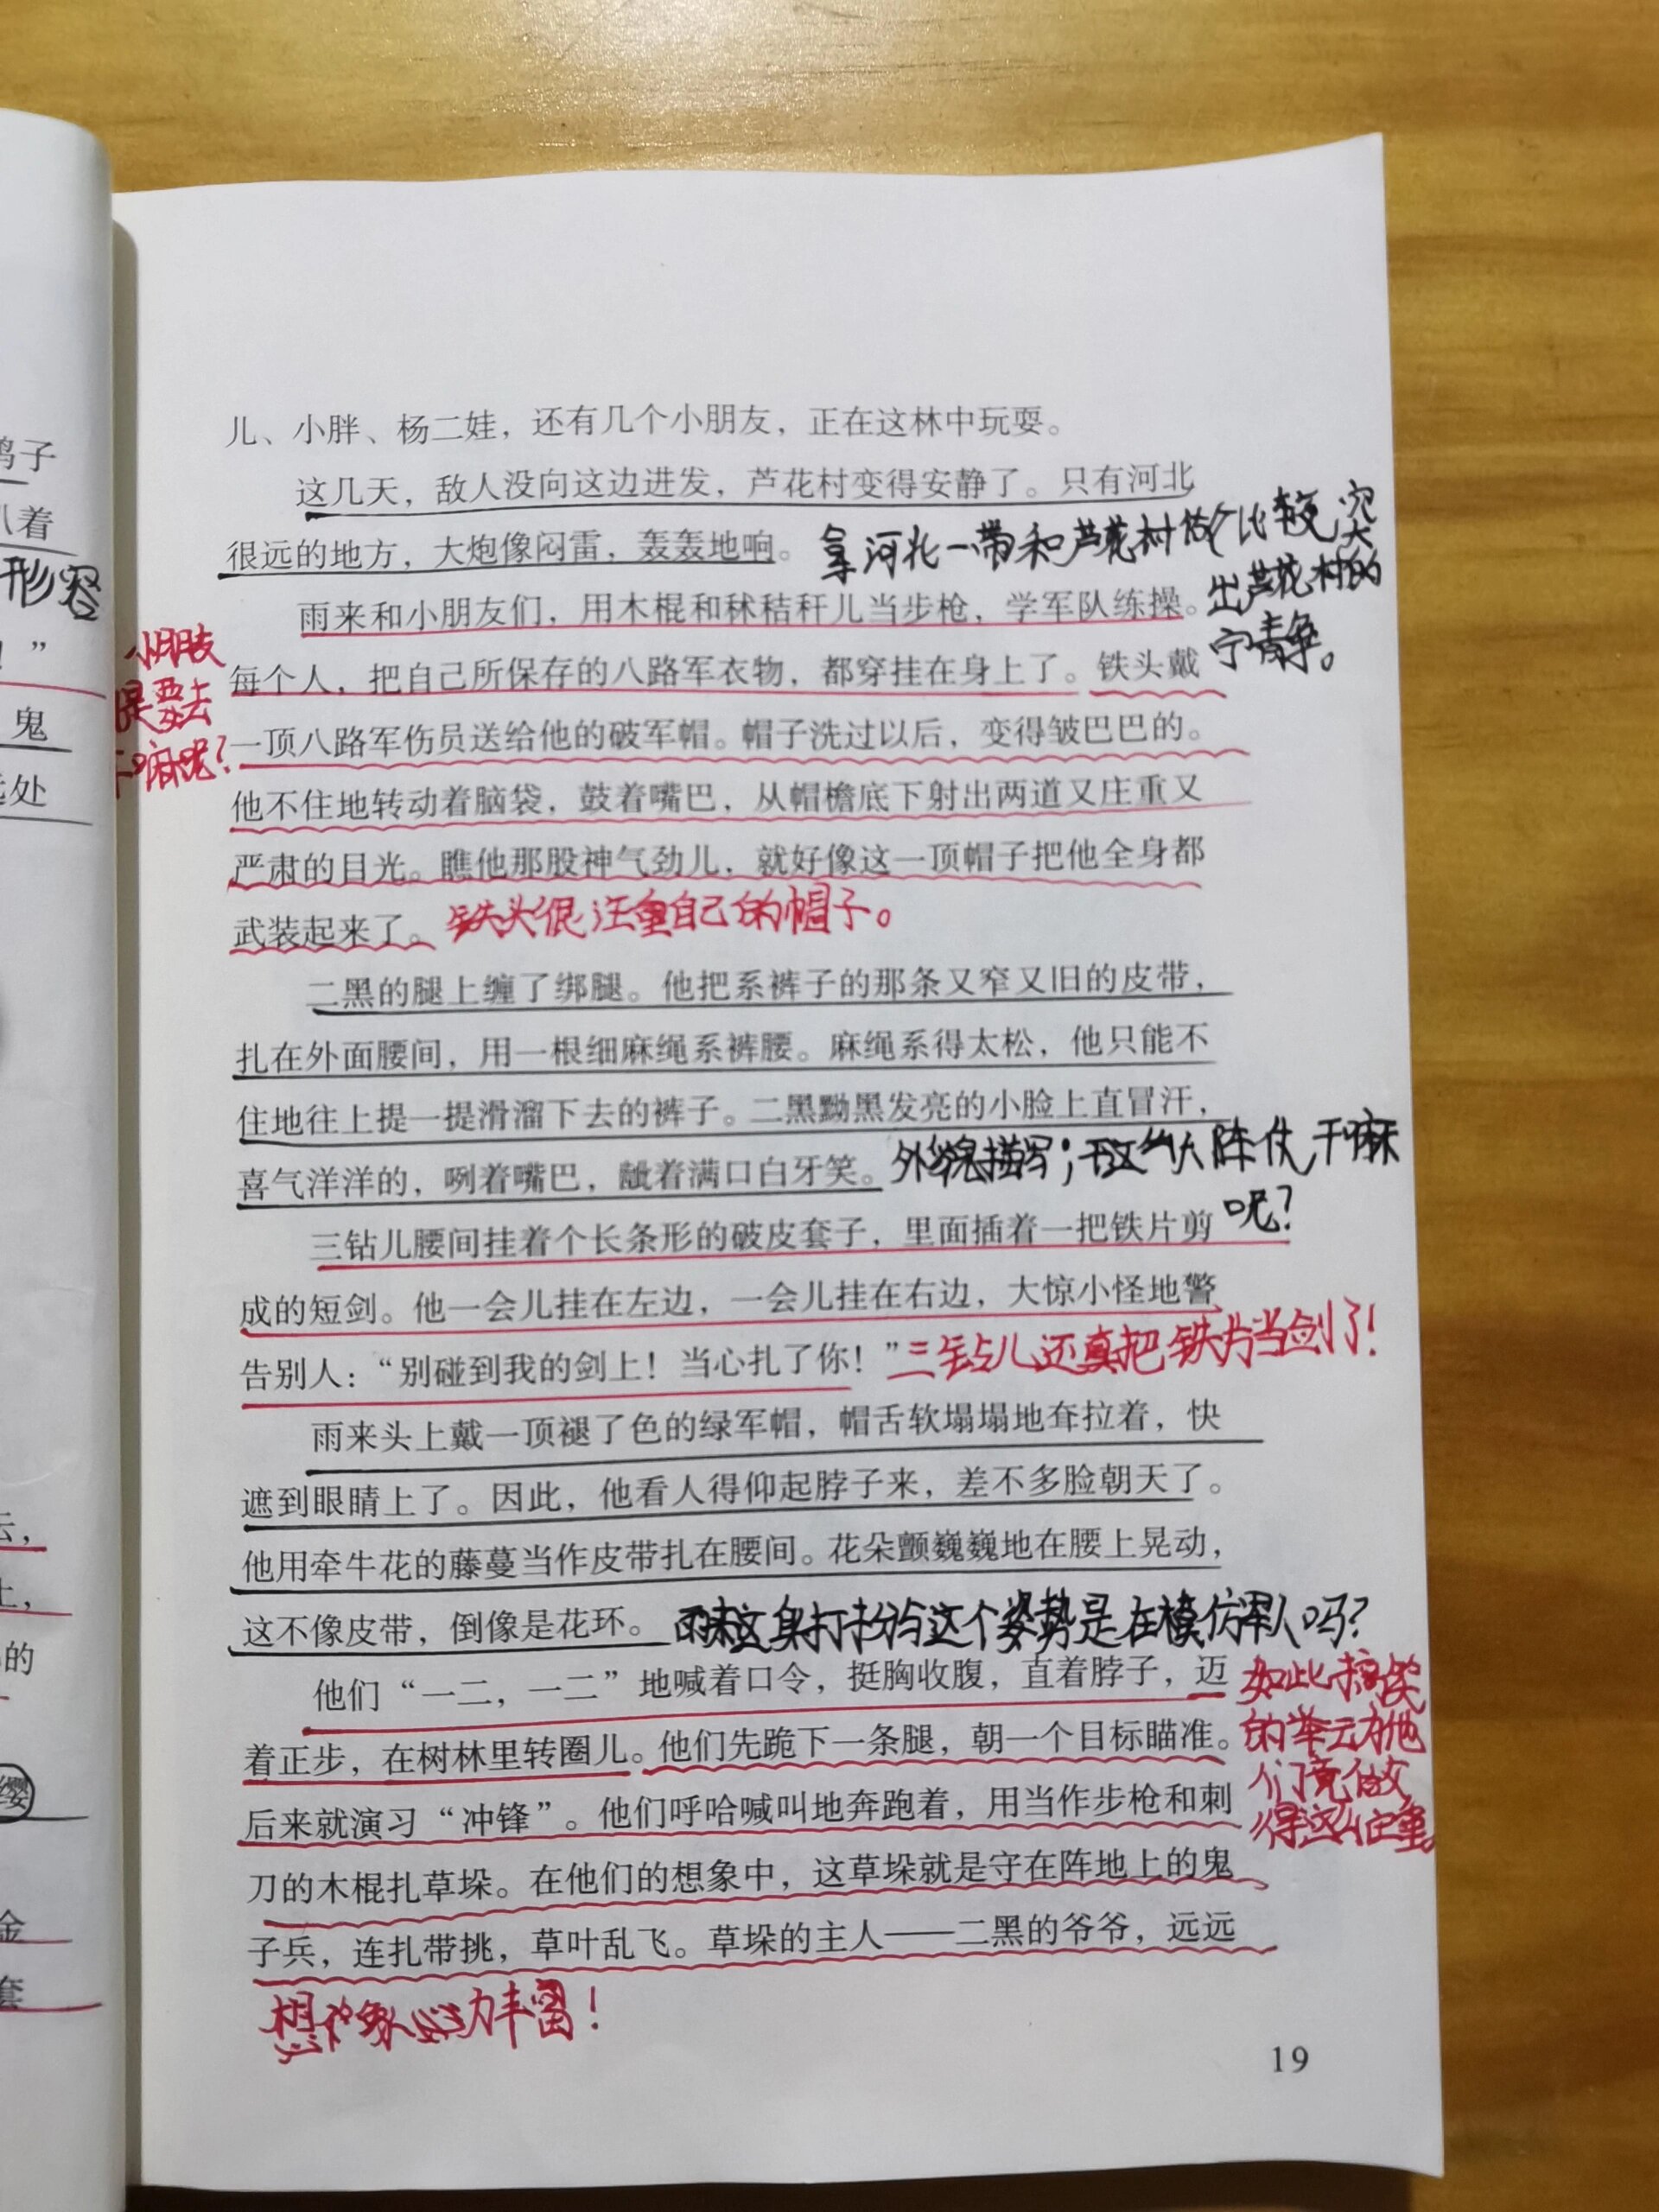 鸣子
着
形容
！”
鬼
处
云，
上，
的
缨
金
套
儿、小胖、杨二娃，还有几个小朋友，正在这林中玩耍。
这几天，敌人没向这边进发，芦花村变得安静了。只有河北
很远的地方，大炮像闷雷，轰轰地响。
拿河北一带和芦花村做比较突
出芦花村的
宁静。
雨来和小朋友们，用木棍和秫秸秆儿当步枪，学军队练操。
小朋友
是要去
干嘛呢？
每个人，把自己所保存的八路军衣物，都穿挂在身上了。铁头戴
一顶八路军伤员送给他的破军帽。帽子洗过以后，变得皱巴巴的。
他不住地转动着脑袋，鼓着嘴巴，从帽檐底下射出两道又庄重又
严肃的目光。瞧他那股神气劲儿，就好像这一顶帽子把他全身都
武装起来了。
铁头很注重自己的帽子。
二黑的腿上缠了绑腿。他把系裤子的那条又窄又旧的皮带，
扎在外面腰间，用一根细麻绳系裤腰。麻绳系得太松，他只能不
住地往上提一提滑溜下去的裤子。二黑黝黑发亮的小脸上直冒汗，
喜气洋洋的，咧着嘴巴，龇着满口白牙笑。
外貌描写；这么大阵仗，干嘛
呢？
三钻儿腰间挂着个长条形的破皮套子，里面插着一把铁片剪
成的短剑。他一会儿挂在左边，一会儿挂在右边，大惊小怪地警
告别人：“别碰到我的剑上！当心扎了你！”
三钻儿还真把铁片当剑了！
雨来头上戴一顶褪了色的绿军帽，帽舌软塌塌地耷拉着，快
遮到眼睛上了。因此，他看人得仰起脖子来，差不多脸朝天了。
他用牵牛花的藤蔓当作皮带扎在腰间。花朵颤巍巍地在腰上晃动，
这不像皮带，倒像是花环。
雨来这身打扮与这个姿势是在模仿军人吗？
他们“一二，一二”地喊着口令，挺胸收腹，直着脖子，迈
着正步，在树林里转圈儿。他们先跪下一条腿，朝一个目标瞄准。
后来就演习“冲锋”。他们呼哈喊叫地奔跑着，用当作步枪和刺
刀的木棍扎草垛。在他们的想象中，这草垛就是守在阵地上的鬼
子兵，连扎带挑，草叶乱飞。草垛的主人——二黑的爷爷，远远
如此搞笑
的举动他
们竟做
得这么庄重
想象力丰富！
19